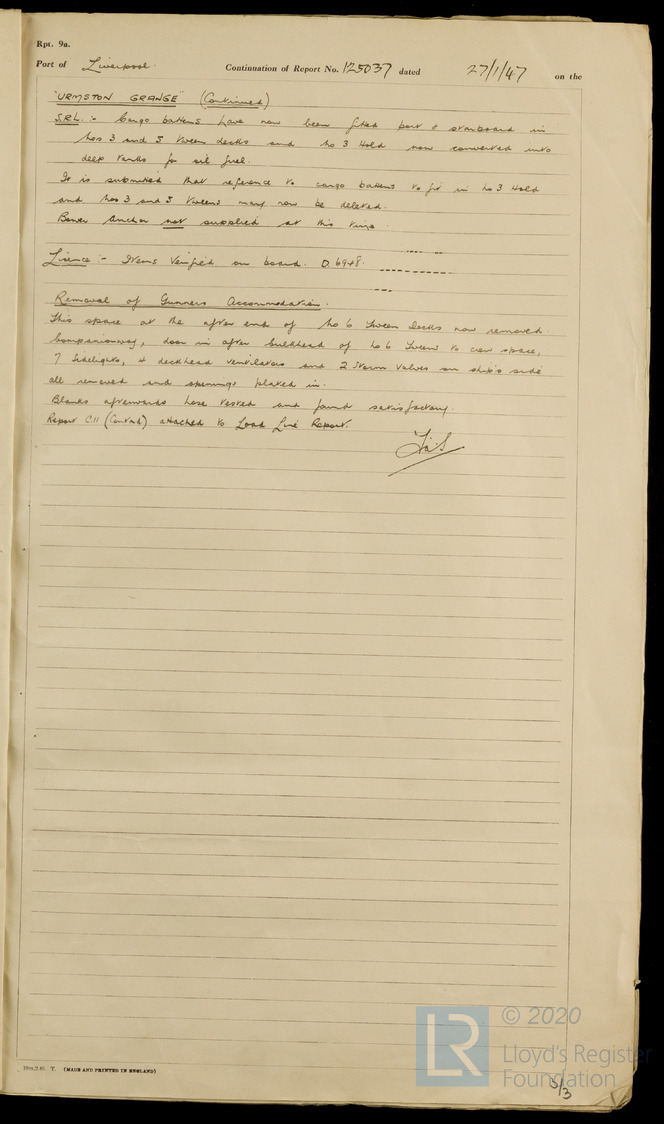 Rpt. 9a.
Port of Liverpool. Continuation of Report No. 125037 dated 27/1/47 on the
"URMSTON GRANGE" (Continued)
S.R.L. :- Cargo battens have now been fitted port & starboard in
Nos 3 and 5 tween decks and No 3 Hold now converted into
deep tanks for oil fuel.
It is submitted that reference to cargo battens to fit in No 3 Hold
and Nos 3 and 5 tweens may now be deleted.
Bower Anchor not supplied at this time.
Licence :- Items Verified on board. D.6948.
Removal of Gunners Accommodation.
This space at the after end of No 6 Tween decks now removed.
Companionway, door in after bulkhead of No 6 Tween to crew space,
7 Sidelights, 4 deckhead ventilators and 2 storm valves on ship's side
all removed and openings plated in.
Blanks afterwards hose tested and found satisfactory.
Report C11 (Contd) attached to Load Line Report.
T. (MADE AND PRINTED IN ENGLAND)
LR
© 2020
Lloyd's Register
Foundation
3/3